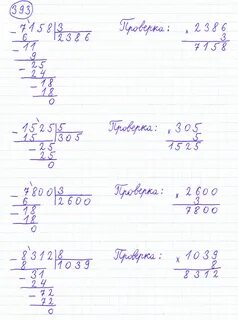 393
-7158|3 Проверка: ×2386
6 |2386 3
-11 7158
9
-25
24
-18
18
0
-1525|5 Проверка: ×305
15 |305 5
-25 1525
25
0
-7800|3 Проверка: ×2600
6 |2600 3
-18 7800
18
0
-8312|8 Проверка: ×1039
8 |1039 8
-31 8312
24
-72
72
0